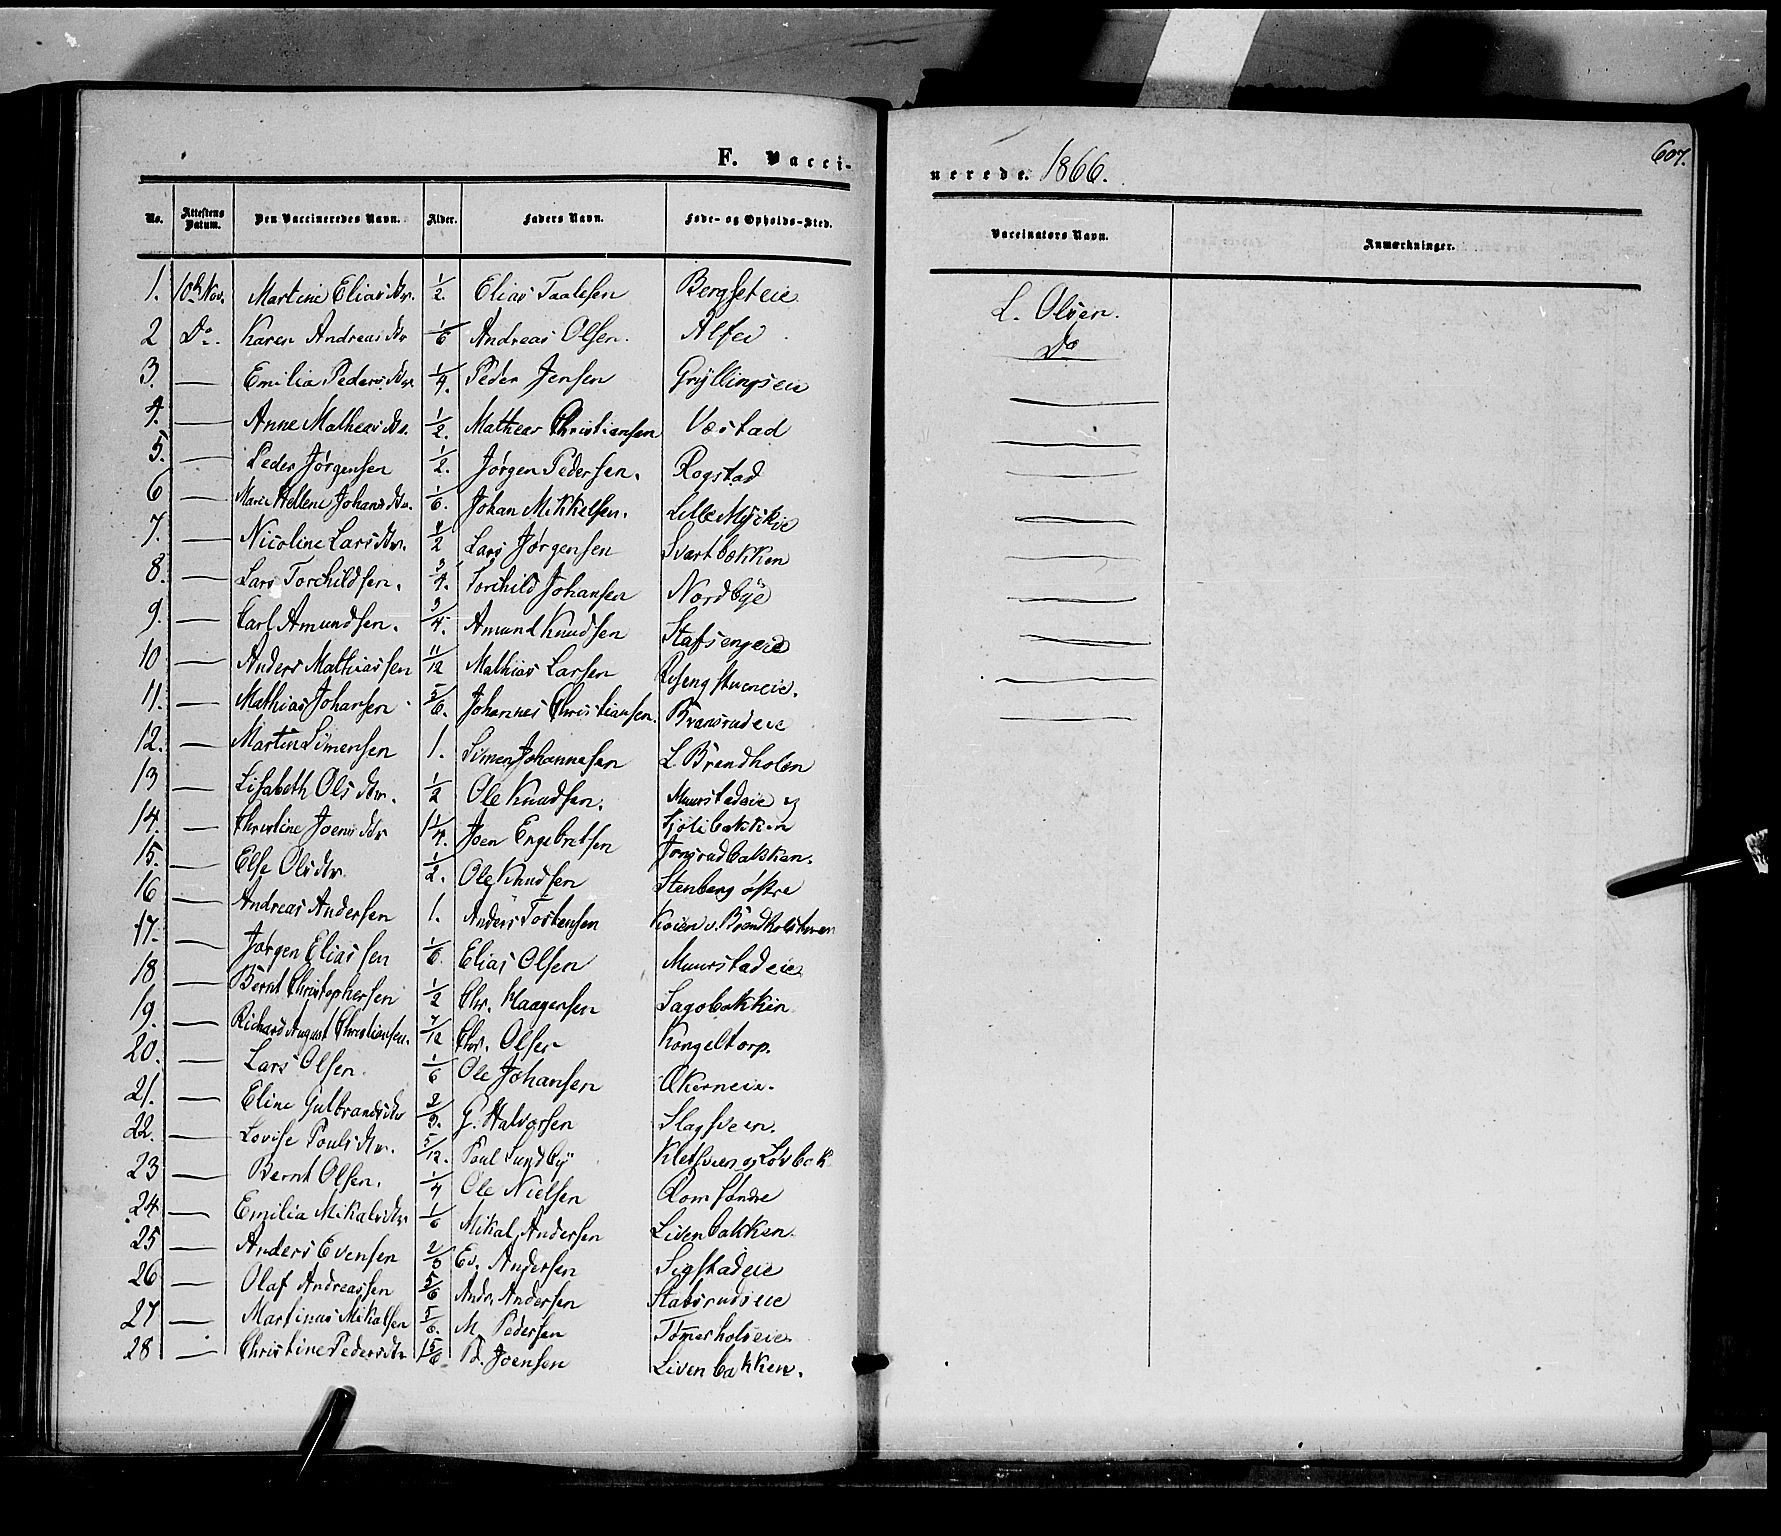 F. Vacci-
nerede. 1866.
607.
No. Attestens Datum. Den Vaccineredes Navn. Alder. Faders Navn. Føde- og Opholds-Sted. Vaccinators Navn. Anmærkninger.
1. 10de Nov. Martine Eliasdtr. 1/2. Elias Taalesen Bergseteie L. Olsen.
2 Do. Karen Andreasdtr 1/6 Andreas Olsen. Alfei Do
3. — Emilia Pedersdtr. 1/4. Peder Jensen Gryllingseie —
4. — Anne Matheasdtr. 1/2. Matheas Christiansen Vestad —
5. — Peder Jørgensen 1/2. Jørgen Pedersen. Rogstad —
6 — Marie Hellene Johansdtr. 1/6. Johan Mikkelsen. Lille —
7. — Nicoline Larsdtr. 1/2 Lars Jørgensen Svartbækken —
8. — Lars Torchildsen. 3/4. Torchild Johansen Nordbye —
9. — Carl Amundsen. 3/4. Amund Knudsen Stafsengeie —
10 — Anders Mathiassen 11/12 Mathias Larsen —
11. — Mathias Johansen 5/6. Johannes Christiansen. —
12. — Martin Simensen 1. Simen Johannesen L. Brendholen
13 — Lisabeth Olsdtr. 1/2 Ole Knudsen. Muurstadeie og
14. — Christine Joensdtr 1 1/4. Joen Engebretsen Kjølibakken
15. — Else Olsdtr. 1/2. Ole Knudsen Jonsrudbakken.
16 — Andreas Andersen 1. Anders Tostensen Stenberg østre
17. — Jørgen Eliassen 1/6. Elias Olsen Muurstadeie
18 — Bernt Christophersen 1/2 Chr. Haagensen Sagbakken
19. — Richard August Christiansen. 7/12 Chr. Olsen Kongeltorp.
20. — Lars Olsen. 1/6 Ole Johansen Økerneie.
21. — Eline Gulbrandsdtr 2/3. G. Halvorsen Slagsveen.
22. — Lovise Poulsdtr. 5/12. Poul Sundby
23 — Bernt Olsen. 1/4 Ole Nielsen Rom søndre
24. — Emilia Mikalsdtr. 1/6 Mikal Andersen Livenbakken.
25 — Anders Evensen 2/3 Ev. Andersen Sigstadeie
26 — Olaf Andreassen 5/6 Andr. Andersen Statsrudseie
27 — Martinus Mikalsen 5/6. M. Pedersen Tømerholseie
28 — Christine Pedersdtr 1 5/6 Pd. Joensen Livenbakken.